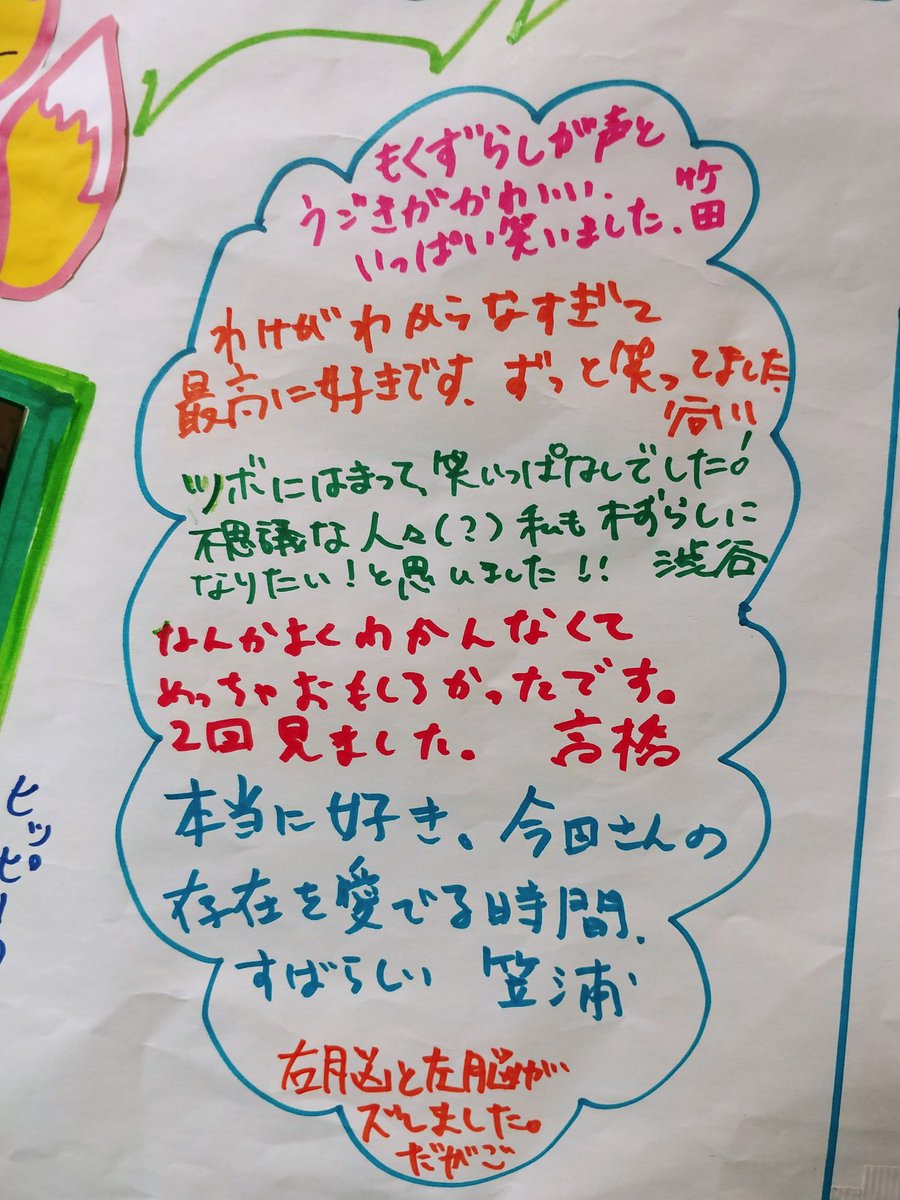 もくずらしが声と
うごきがかわいい、
いっぱい笑いました、竹田
わけがわからなすぎて
最高に好きです、ずっと笑ってました、
ツボにはまって、笑いっぱなしでした!
不思議な人々(?)私も もずらしに
なりたい!と思いました!! 渋谷
なんかよくわかんなくて
めっちゃおもしろかったです。
2回見ました。 高橋
本当に好き。今田さんの
存在を愛でる時間、
すばらしい 笠浦
右脳と左脳が
ズレました。
だがご